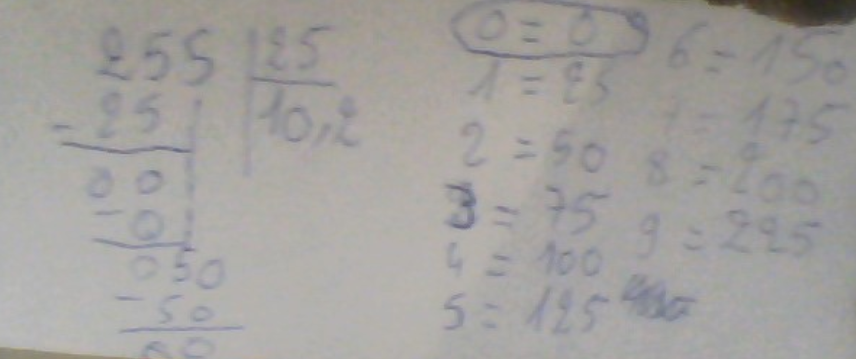 255 25
- 25 10,2
00
- 0
050
- 50
00
0 = 0
1 = 25
2 = 50
3 = 75
4 = 100
5 = 125
6 = 150
7 = 175
8 = 200
9 = 225